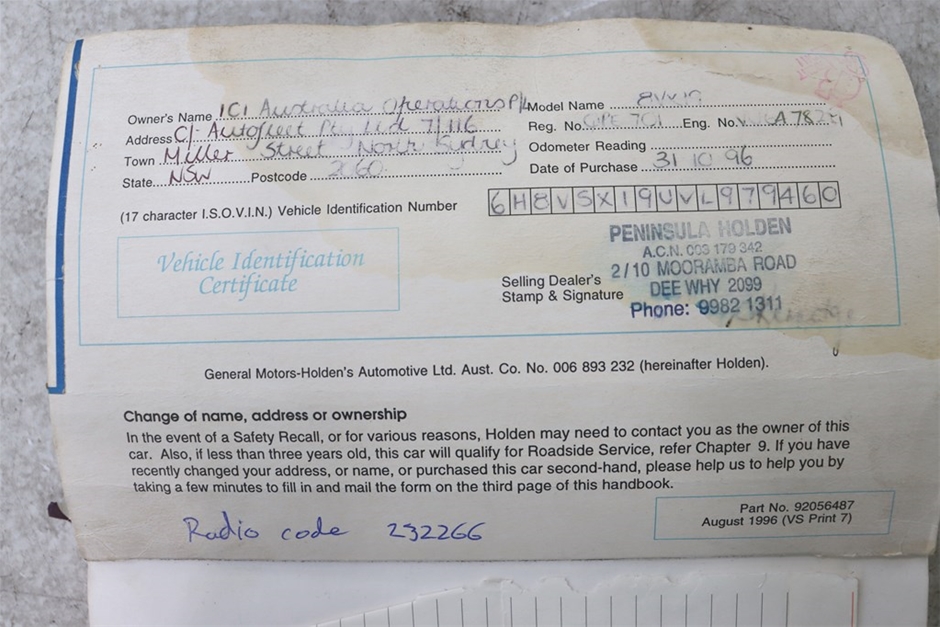 Owner's Name ICI Australia Operations P/L
Address C/- Autofleet Pty Ltd 7/116
Town Miller Street North Sydney
State NSW Postcode 2060
Model Name 8VX19
Reg. No. Eng. No.
Odometer Reading
Date of Purchase 31 10 96
(17 character I.S.O.V.I.N.) Vehicle Identification Number 6H8VSX19UVL979460
Vehicle Identification
Certificate
Selling Dealer's
Stamp & Signature
PENINSULA HOLDEN
A.C.N. 003 179 342
2/10 MOORAMBA ROAD
DEE WHY 2099
Phone: 9982 1311
General Motors-Holden's Automotive Ltd. Aust. Co. No. 006 893 232 (hereinafter Holden).
Change of name, address or ownership
In the event of a Safety Recall, or for various reasons, Holden may need to contact you as the owner of this
car. Also, if less than three years old, this car will qualify for Roadside Service, refer Chapter 9. If you have
recently changed your address, or name, or purchased this car second-hand, please help us to help you by
taking a few minutes to fill in and mail the form on the third page of this handbook.
Radio code 232266
Part No. 92056487
August 1996 (VS Print 7)